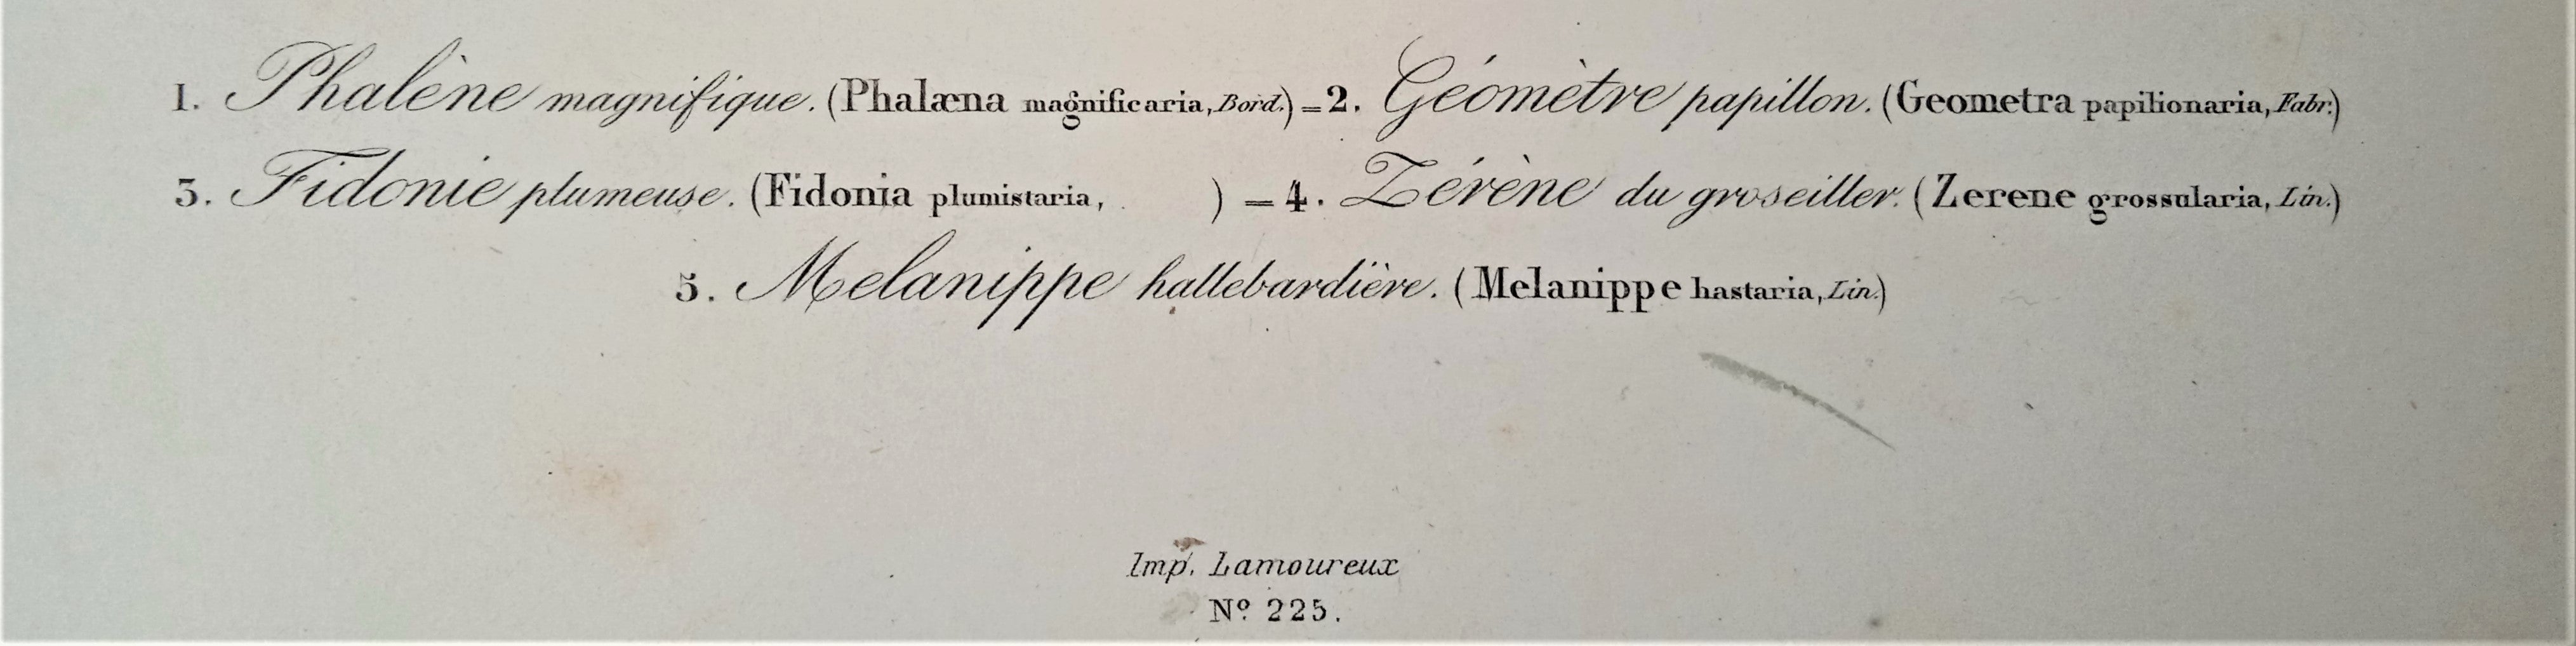 1. Phalène magnifique. (Phalæna magnificaria, Bord.) = 2. Géomètre papillon. (Geometra papilionaria, Fabr.)
3. Fidonie plumeuse. (Fidonia plumistaria, ) = 4. Zérène du groseiller. (Zerene grossularia, Lin.)
5. Melanippe hallebardière. (Melanippe hastaria, Lin.)
Imp. Lamoureux
Nº 225.